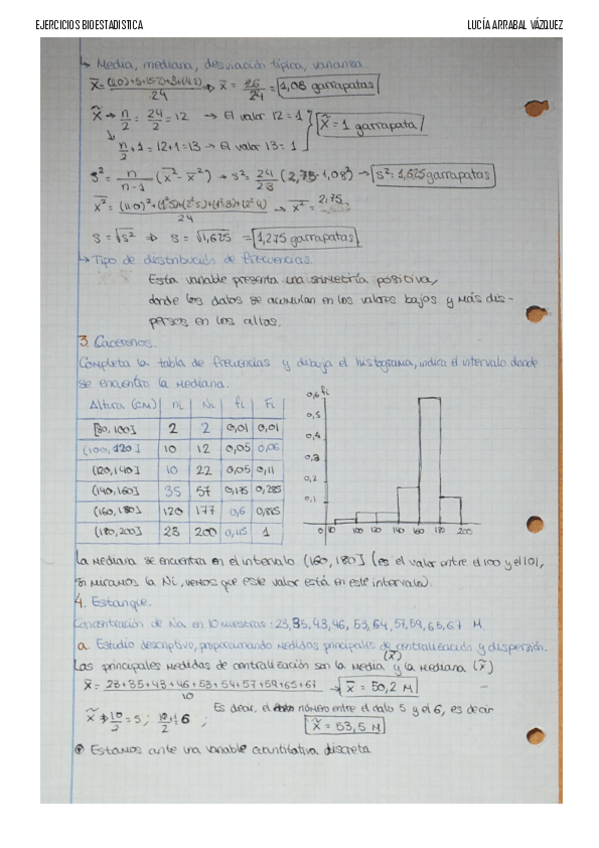 EJERCICIOS BIOESTADISTICA
LUCÍA ARRABAL VÁZQUEZ
↳ Media, mediana, desviación típica, varianza.
x̄ = (1·0)+5+(5·2)+3+(4·2) / 24 ⇒ x̄ = 26/24 = 1,08 garrapatas
x̃ → n/2 = 24/2 = 12 → El valor 12 = 1
n/2 + 1 = 12+1 = 13 → El valor 13 = 1
x̃ = 1 garrapata
s² = n/n-1 (x̄² - x̄²) → s² = 24/23 (2,75 - 1,08²) → s² = 1,625 garrapatas
24 → x̄² = 2,75
s = √s² ⇒ s = √1,625 = 1,275 garrapatas
↳ Tipo de distribución de frecuencias.
Esta variable presenta una simetría positiva,
donde los datos se acumulan en los valores bajos y más dis-
persos en los altos.
3. Cacereños.
Completa la tabla de frecuencias y dibuja el histograma, indica el intervalo donde
se encuentra la mediana.
Altura (cm) ni Ni fi Fi
[80, 100] 2 2 0,01 0,01
(100, 120] 10 12 0,05 0,06
(120, 140] 10 22 0,05 0,11
(140, 160] 35 57 0,175 0,285
(160, 180] 120 177 0,6 0,885
(180, 200] 23 200 0,115 1
0,6 fi
0,5
0,4
0,3
0,2
0,1
0 80 100 120 140 160 180 200
La mediana se encuentra en el intervalo (160, 180] (es el valor entre el 100 y el 101,
si miramos la Ni, vemos que este valor está en este intervalo).
4. Estanque.
Concentración de Na en 10 muestras: 23, 35, 43, 46, 53, 54, 57, 59, 65, 67 M.
a. Estudio descriptivo, proporcionando medidas principales de centralización y dispersión.
Las principales medidas de centralización son la media (x̄) y la mediana (x̃)
x̄ = 23+35+43+46+53+54+57+59+65+67 / 10 → x̄ = 50,2 M
x̃ ⇒ 10/2 = 5; 10/2+1 6; Es decir, el número entre el dato 5 y el 6, es decir
x̃ = 53,5 M
Estamos ante una variable cuantitativa discreta